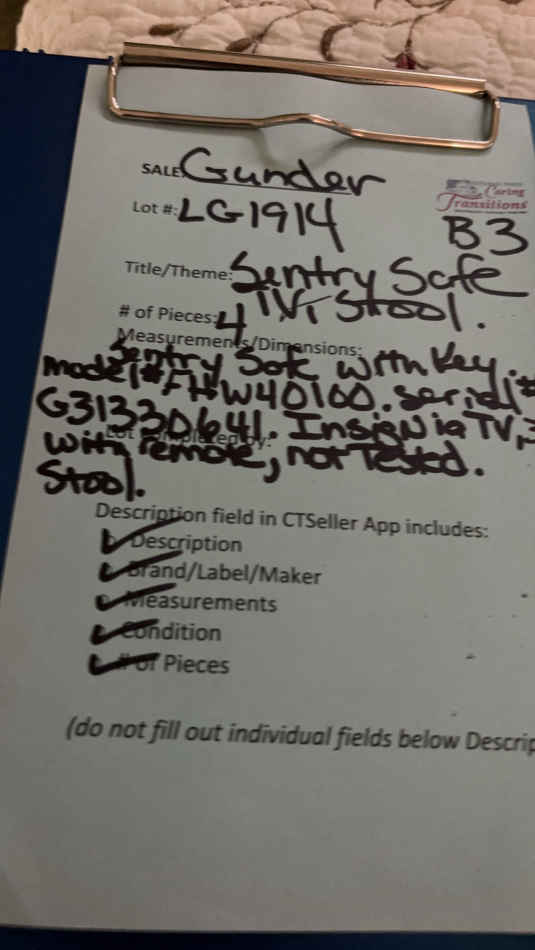 SALE: Gunder
Caring Transitions
Lot #: LG1914 B3
Title/Theme: Sentry Safe
# of Pieces: 4 TV, Stool.
Measurements/Dimensions:
Sentry Safe with key.
model# FHW40100. serial#
G31330641. Insignia TV,
with remote, not Tested.
Stool.
Description field in CTSeller App includes:
Description
Brand/Label/Maker
Measurements
Condition
# of Pieces
(do not fill out individual fields below Descrip